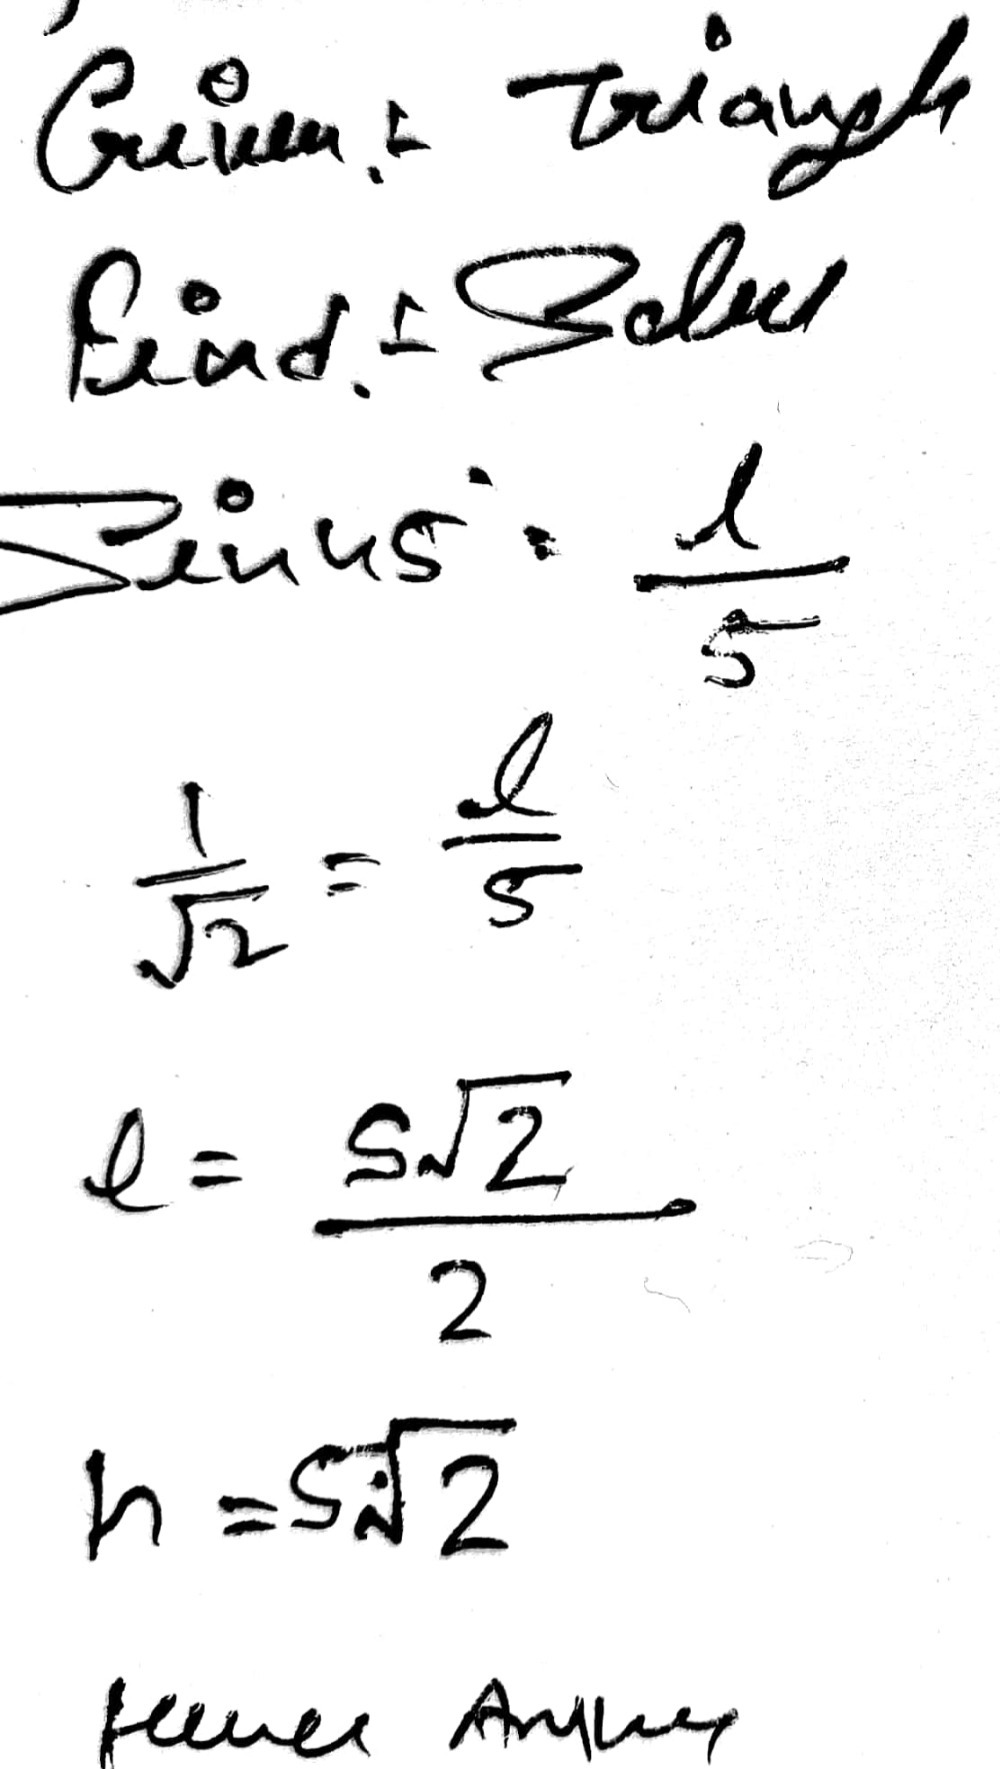 Given :- Triangle
find :- Solve
Sin 45° = l/5
1/√2 = l/5
l = 5√2/2
h = 5√2
Hence Answer